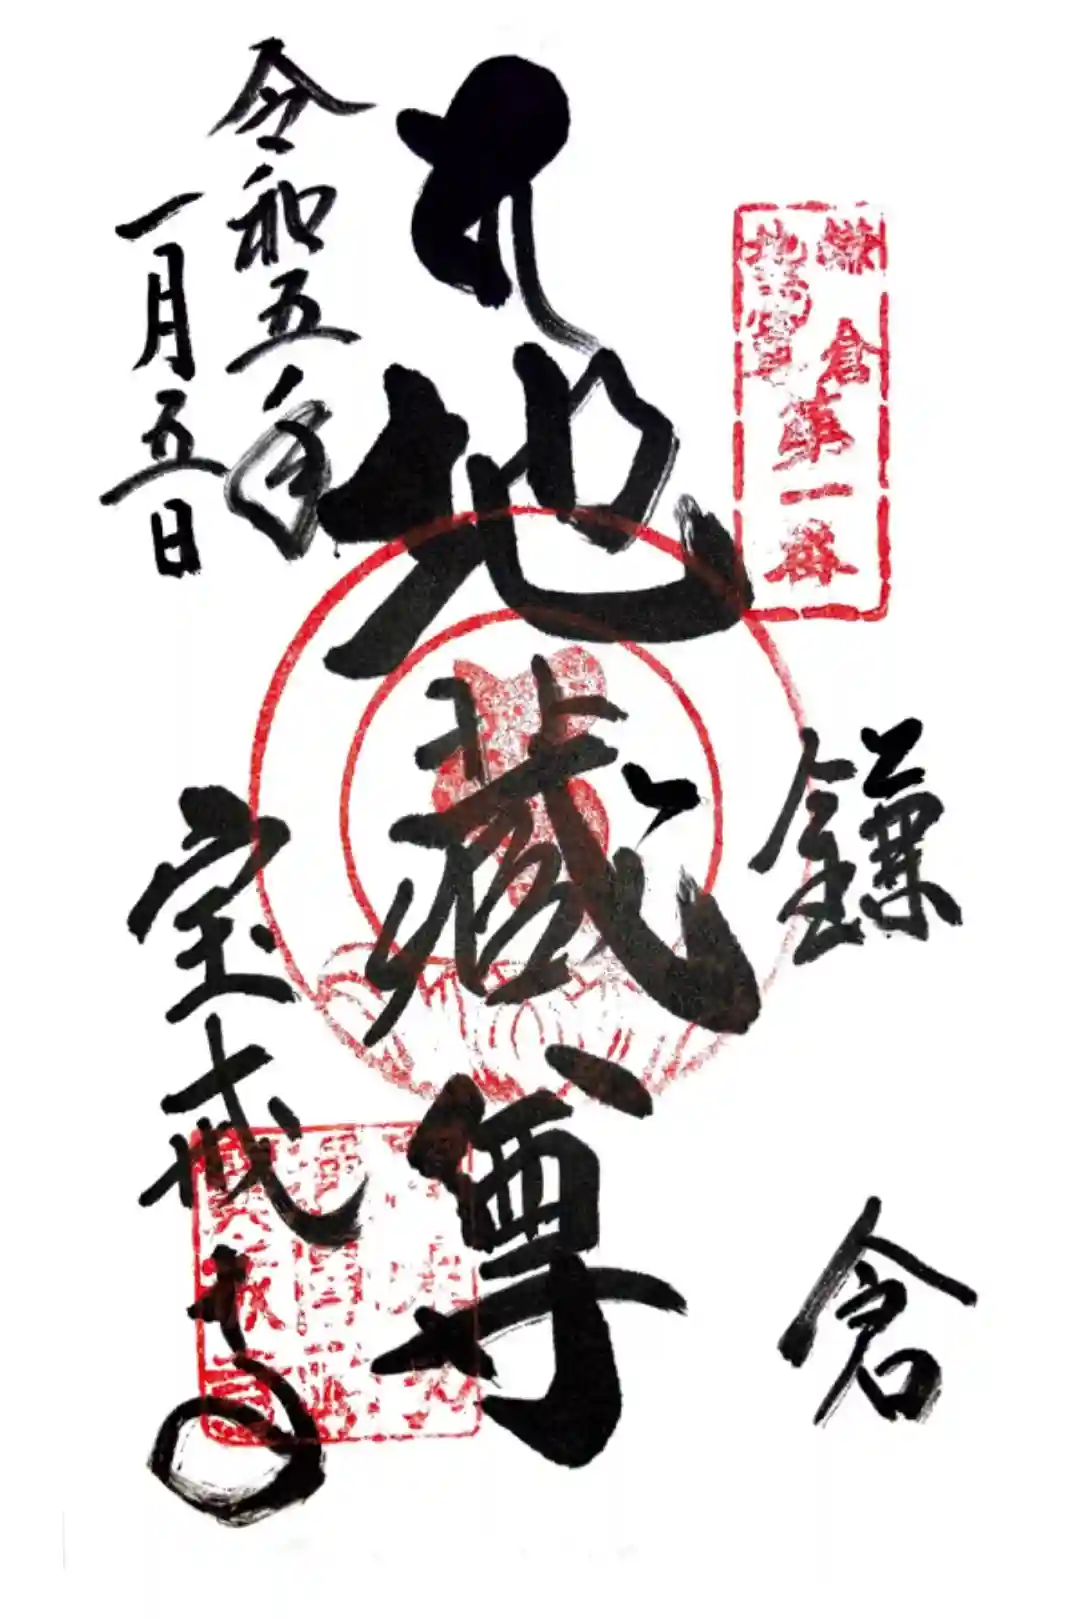 鎌倉
鎌倉
地蔵尊
第一番
地蔵尊
令和五年
一月五日
宝戒寺